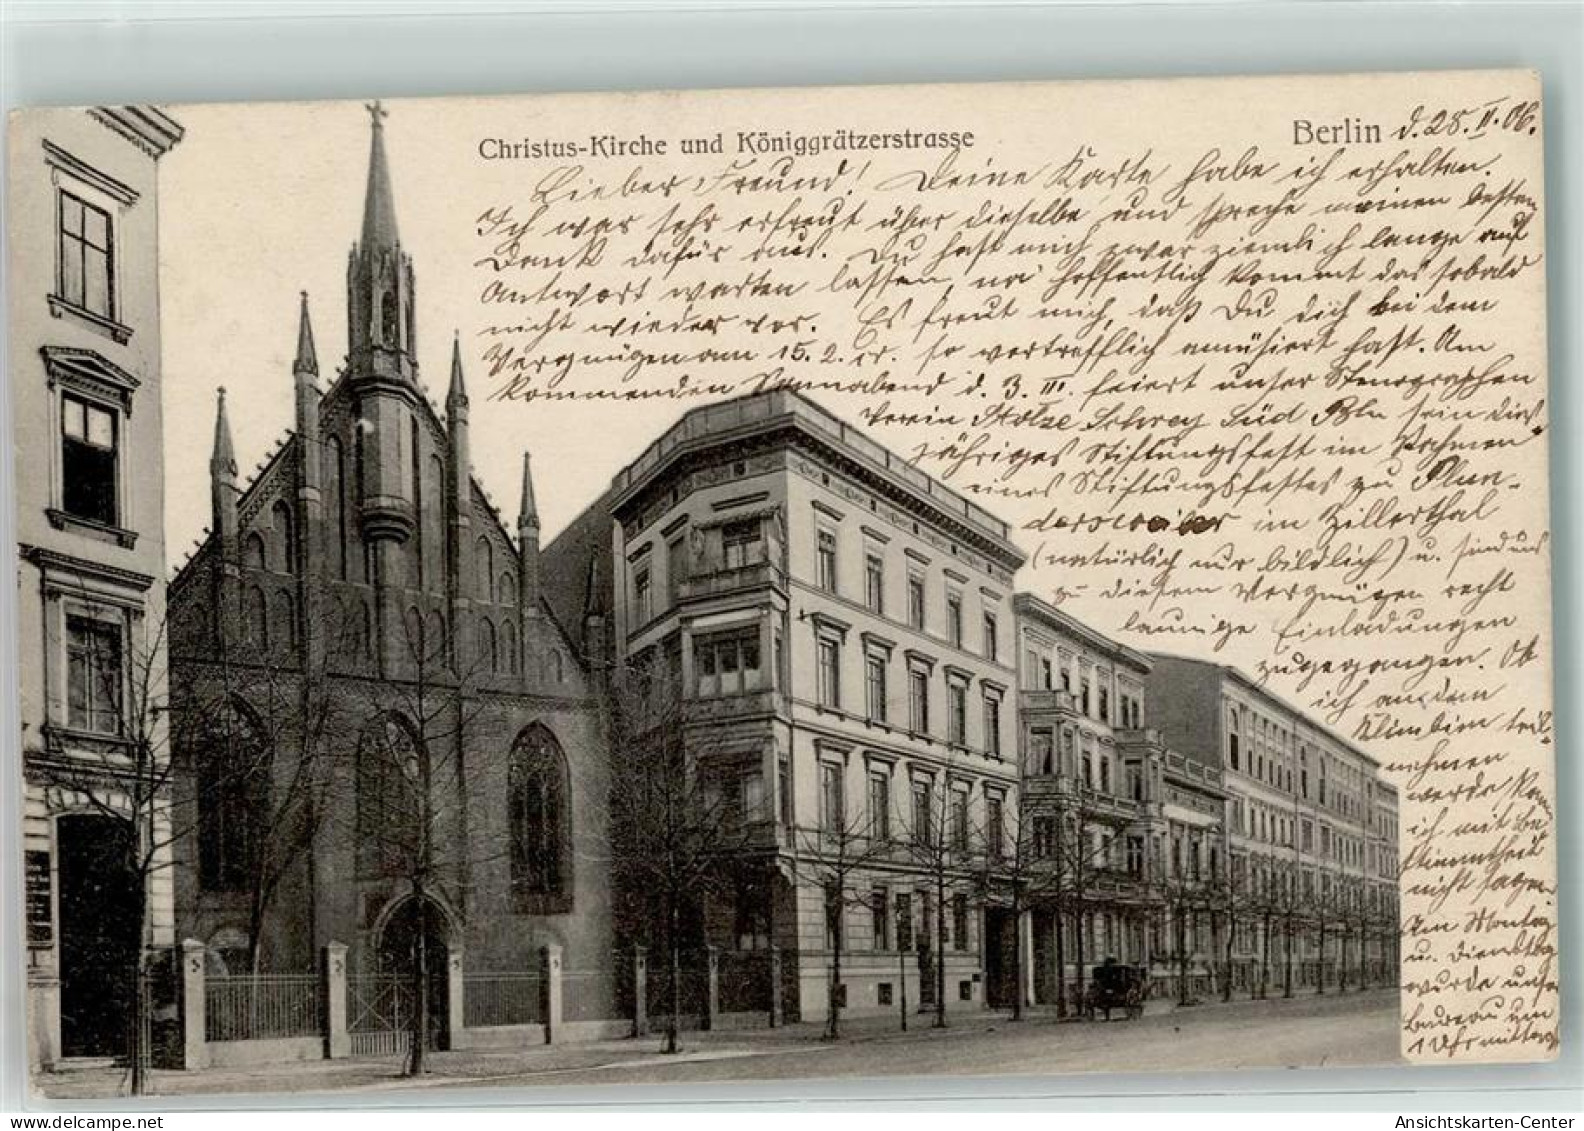 Christus-Kirche und Königgrätzerstrasse
Berlin d. 28. II. 06.
Lieber Freund! Deine Karte habe ich erhalten.
Ich war sehr erfreut über dieselbe und spreche meinen besten
Dank dafür aus. Du hast mich zwar ziemlich lange auf
Antwort warten lassen, na hoffentlich kommt das sobald
nicht wieder vor. Es freut mich, daß Du dich bei dem
Vergnügen am 15. 2. cr. so vortrefflich amüsiert hast. Am
kommenden Sonnabend d. 3. III. feiert unser Stenographen
Verein Stolze Schrey Süd Bln sein dies-
jähriges Stiftungsfest im Rahmen
eines Stiftungsfestes zu Plun-
dersweiler im Zillerthal
(natürlich nur bildlich) u. sind uns
zu diesem Vergnügen recht
launige Einladungen
zugegangen. Ob
ich an dem
Klimbim teil-
nehmen
werde kann
ich mit Be-
stimmtheit
nicht sagen
Am Montag
u. Dienstag
wurde unser
Bureau um
1 Uhr mittags
Ansichtskarten-Center
www.delcampe.net